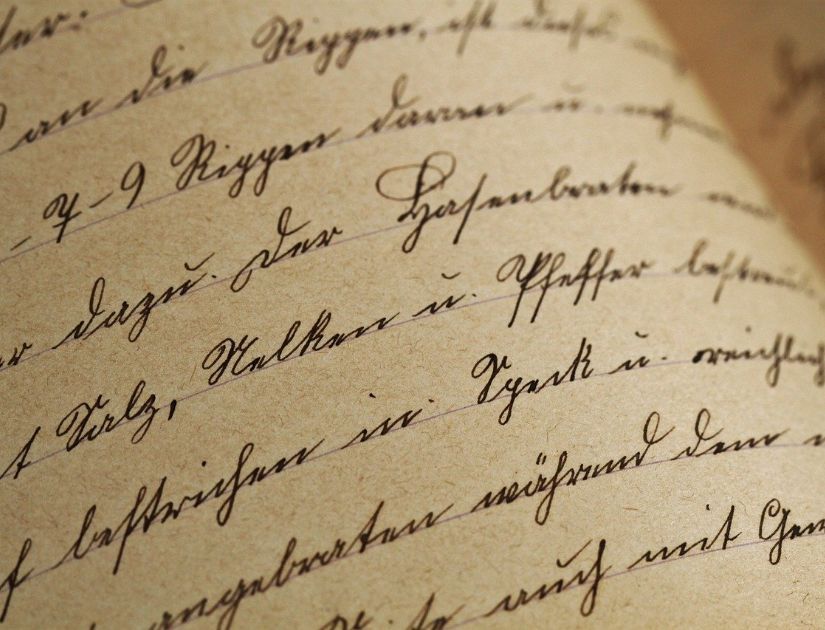 an die Rippen, ist dieses
- 7 - 9 Rippen daran u.
dazu. Der Hasenbraten
Salz, Nelken u. Pfeffer bestreut
bestrichen in Speck u. reichlich
angebraten während dem
auch mit